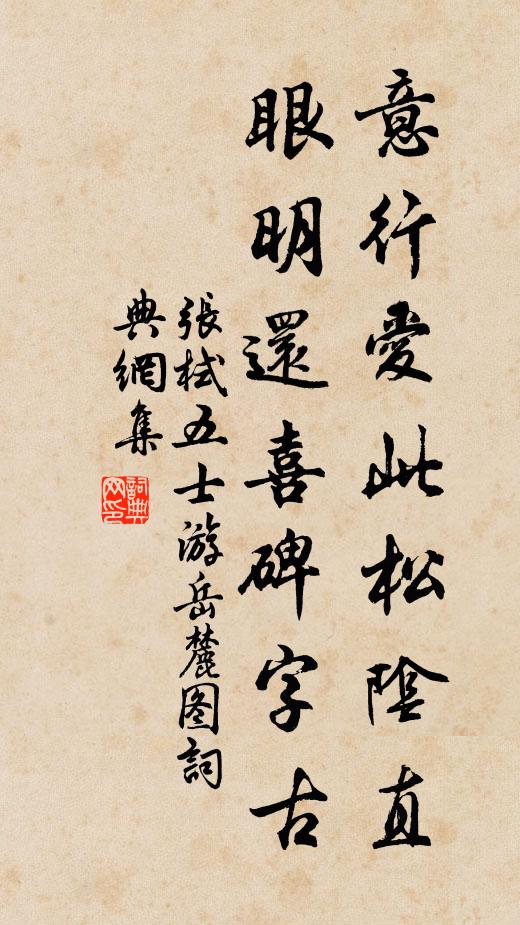 意行愛此松陰直
眼明還喜碑字古
張栻五士游岳麓图詞
典網集
詞典网印